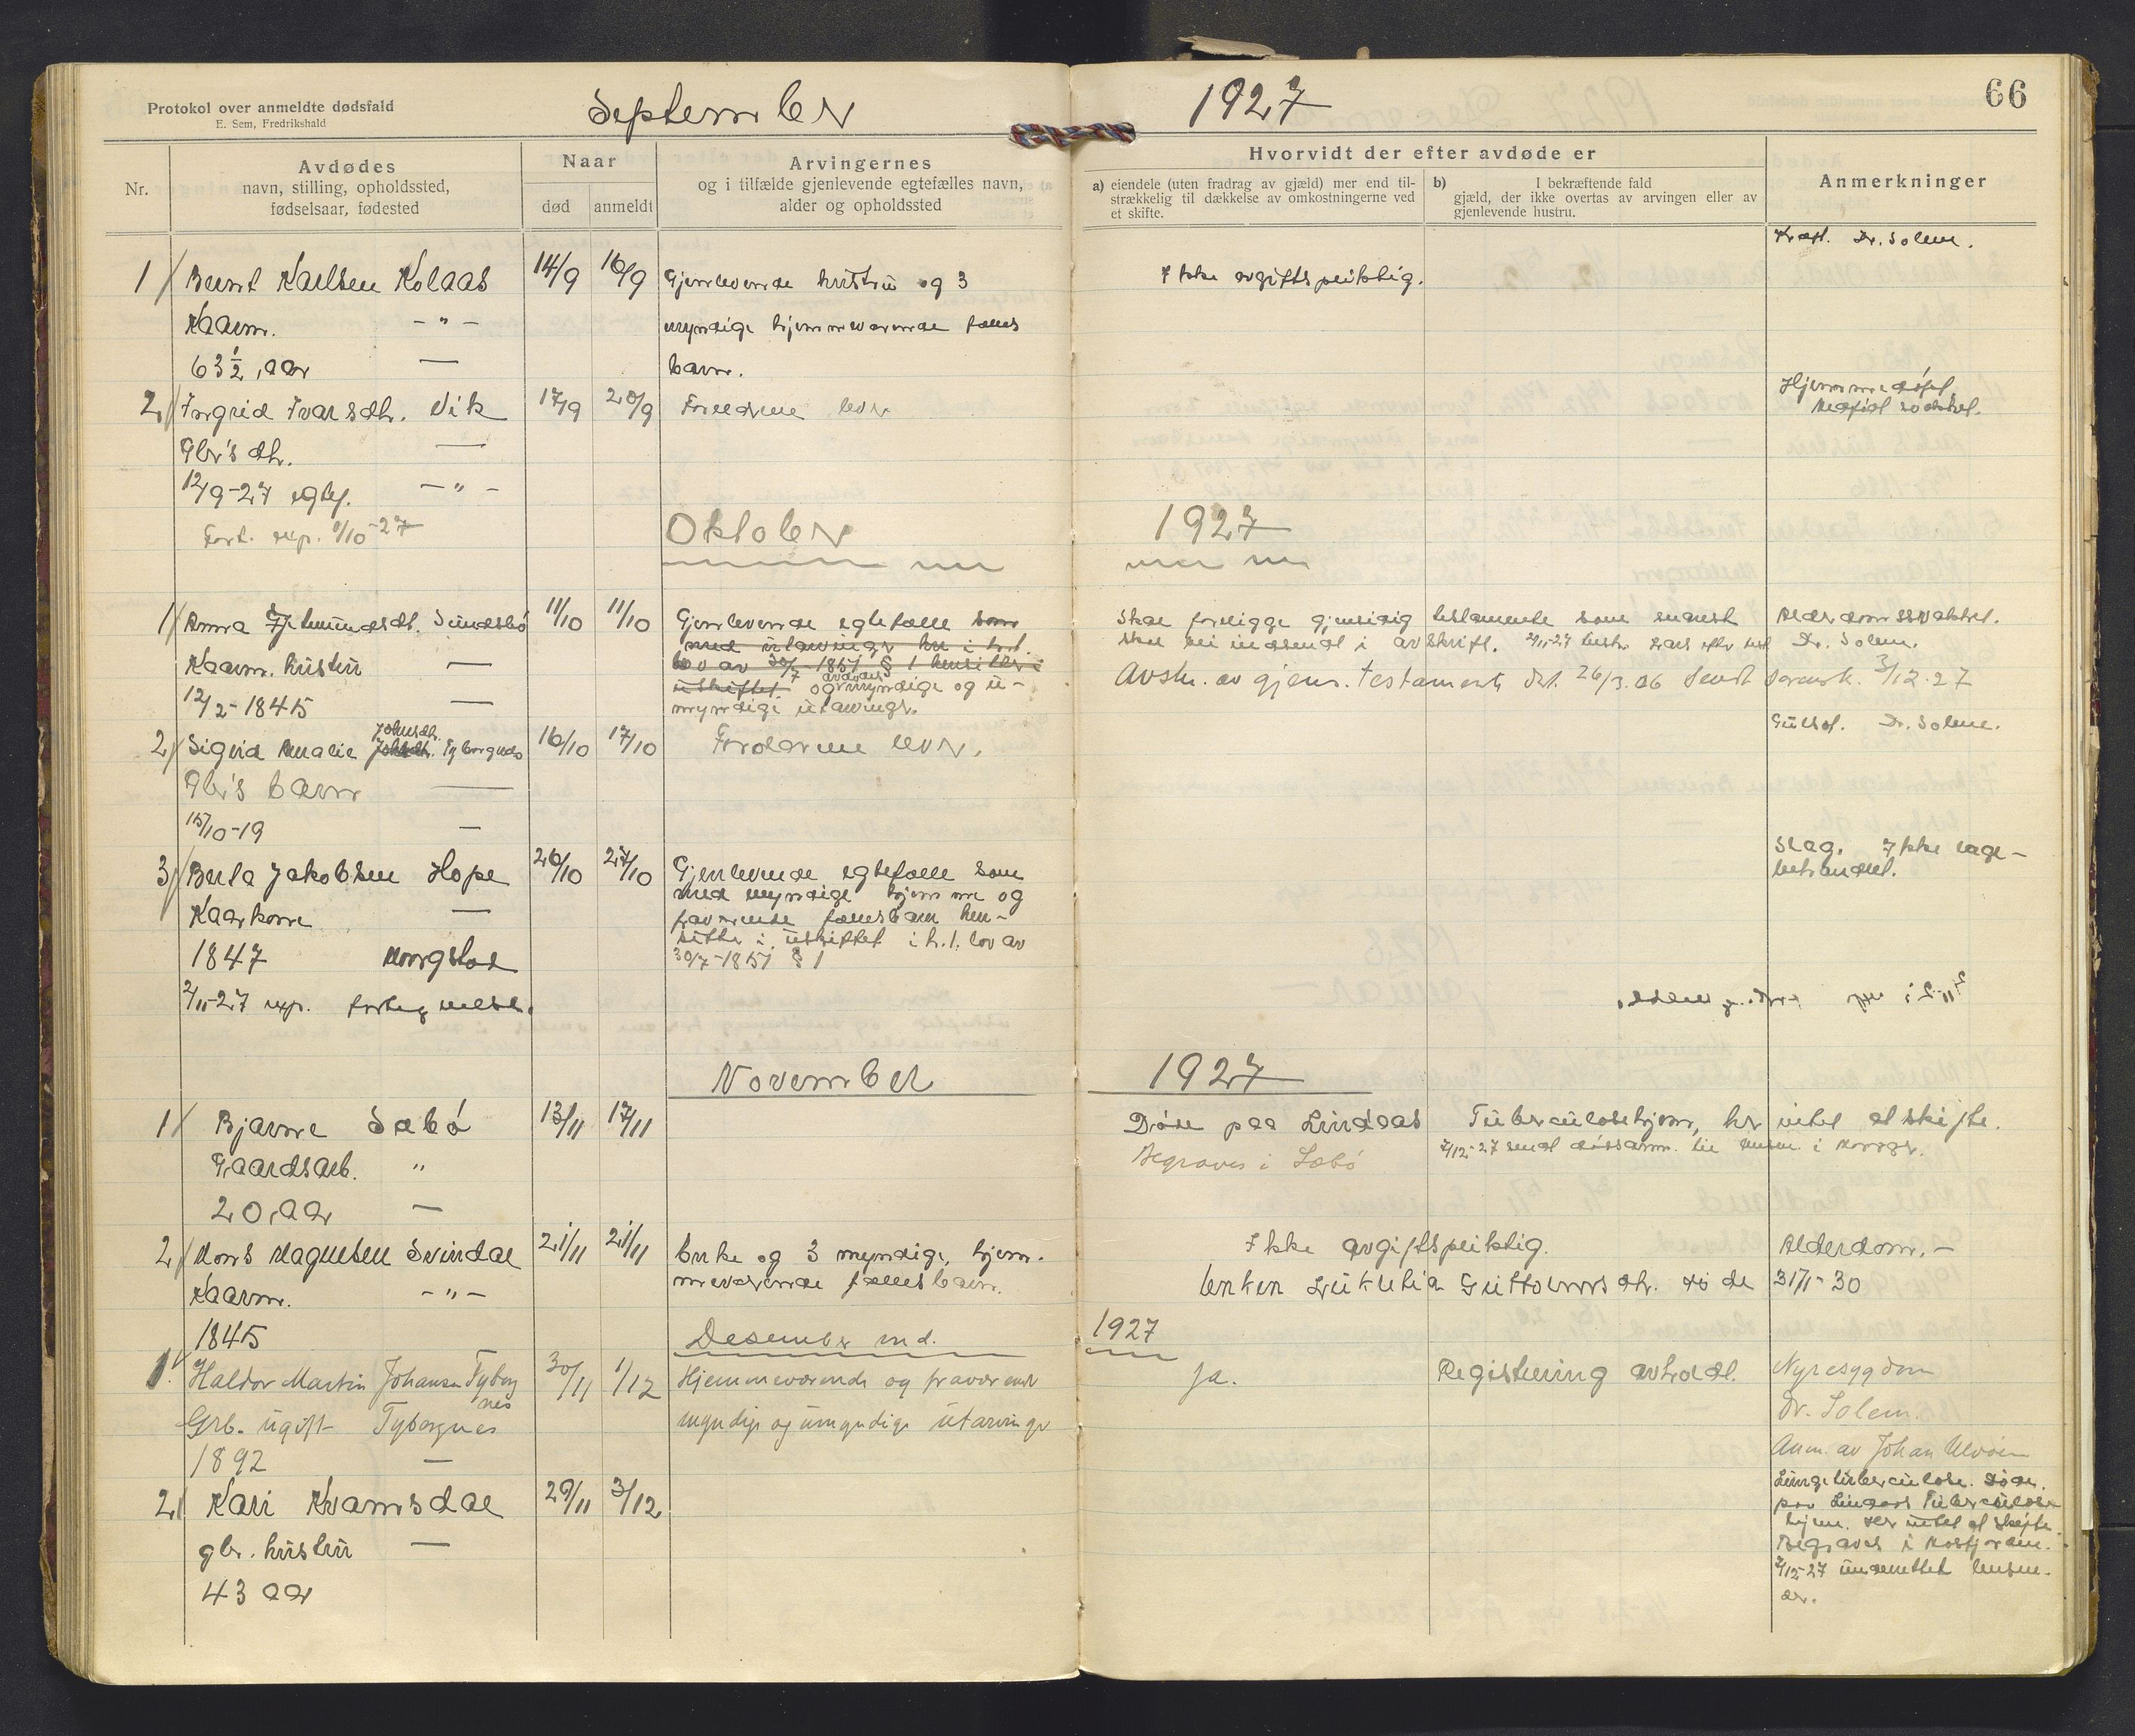 Protokol over anmeldte dødsfald
E. Sem, Fredrikshald
September
1927
66
Nr.
Avdødes
navn, stilling, opholdssted,
fødselsaar, fødested
Naar
død
anmeldt
Arvingernes
og i tilfælde gjenlevende egtefælles navn,
alder og opholdssted
Hvorvidt der efter avdøde er
a) eiendele (uten fradrag av gjæld) mer end til-
strækkelig til dækkelse av omkostningerne ved
et skifte.
b) I bekræftende fald
gjæld, der ikke overtas av arvingen eller av
gjenlevende hustru.
Anmerkninger
1/ Bernt Karlsen Kolaas 14/9 16/9 Gjenlevende hustru og 3 Ikke avgiftspliktig. Kræft. Dr. Solem.
Kaarm. - " - myndige hjemmeværende fælles
63 1/2 aar — barn.
2/ Ingrid Ivarsdtr. Vik 17/9 20/9 Forældrene lever Hjemmedøpt.
Medfødt svakhet.
Gbr's dtr. —
12/9-27 egtef. - " -
Fort. exp. 1/10-27
Oktober 1927
1/ Anna Sundsbø 11/10 11/10 Gjenlevende egtefælle som Skal foreligge gjensidig testamente som snarest Alderdomssvakhet.
med utarvinger hen i h.t. skal bli indsendt i avskrift. Dr. Solem.
Kaarm. hustru — lov av 30/7-1851 § 1 hensitter i
Avskr. av gjens. testamente dat. 26/3.06 sendt sorensk. 3/12.27
uskiftet. og avdødes myndige og u-
12/2-1845 — myndige utarvinger.
2/ Sigrid Amalie Johnsdtr. Tyborgnes 16/10 17/10 Forældrene lever. Gulsot. Dr. Solem.
Gbr's barn —
15/10-19 —
3/ Berta Jakobsen Hope 26/10 27/10 Gjenlevende egtefælle som Slag. Ikke læge-
behandlet.
med myndige hjemme og
Kaarkone — fraværende fællesbarn hen-
sitter i uskiftet i h.t. lov av
1847 Mongstad 30/7-1851 § 1
2/11-27 exp. fortegnelse.
November 1927
1/ Bjarne Sæbø 13/11 17/11 Døde paa Lindaas Tuberculosehjem, her intet at skifte.
Gaardsarb. " Begraves i Sæbø
20 aar —
2/ Mons Magnesen Svindal 21/11 21/11 Enke og 3 myndige, hjem- Ikke avgiftspliktig. Alderdom.-
Kaarm. - " - meværende fællesbarn. Enken Lukretia Guttormsdtr. døde 31/1-30
1845
Desember md. 1927
1/ Haldor Martin Johansen Tyborg 30/11 1/12 Hjemmeværende og fraværende Ja. Registrering avholdt. Nyresygdom
nes
Grb. ugift Tyborgnes myndige og umyndige utarvinger Dr. Solem.
1892 — Anm. av Johan Ulvøen
2/ Kari Kvamsdal 29/11 3/12 Lungetuberculose. Døde
paa Lindaas Tuberculose
hjem. Her intet at skifte.
gbr. hustru — Begraves i Masfjorden.
43 aar 2/12-27 underrettet lensm.
der.